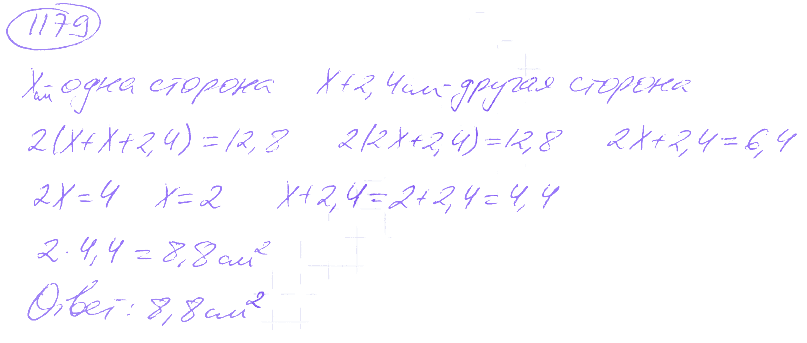 1179
x см - одна сторона x+2,4 см - другая сторона
2(x+x+2,4)=12,8 2(2x+2,4)=12,8 2x+2,4=6,4
2x=4 x=2 x+2,4=2+2,4=4,4
2·4,4=8,8 см²
Ответ: 8,8 см²